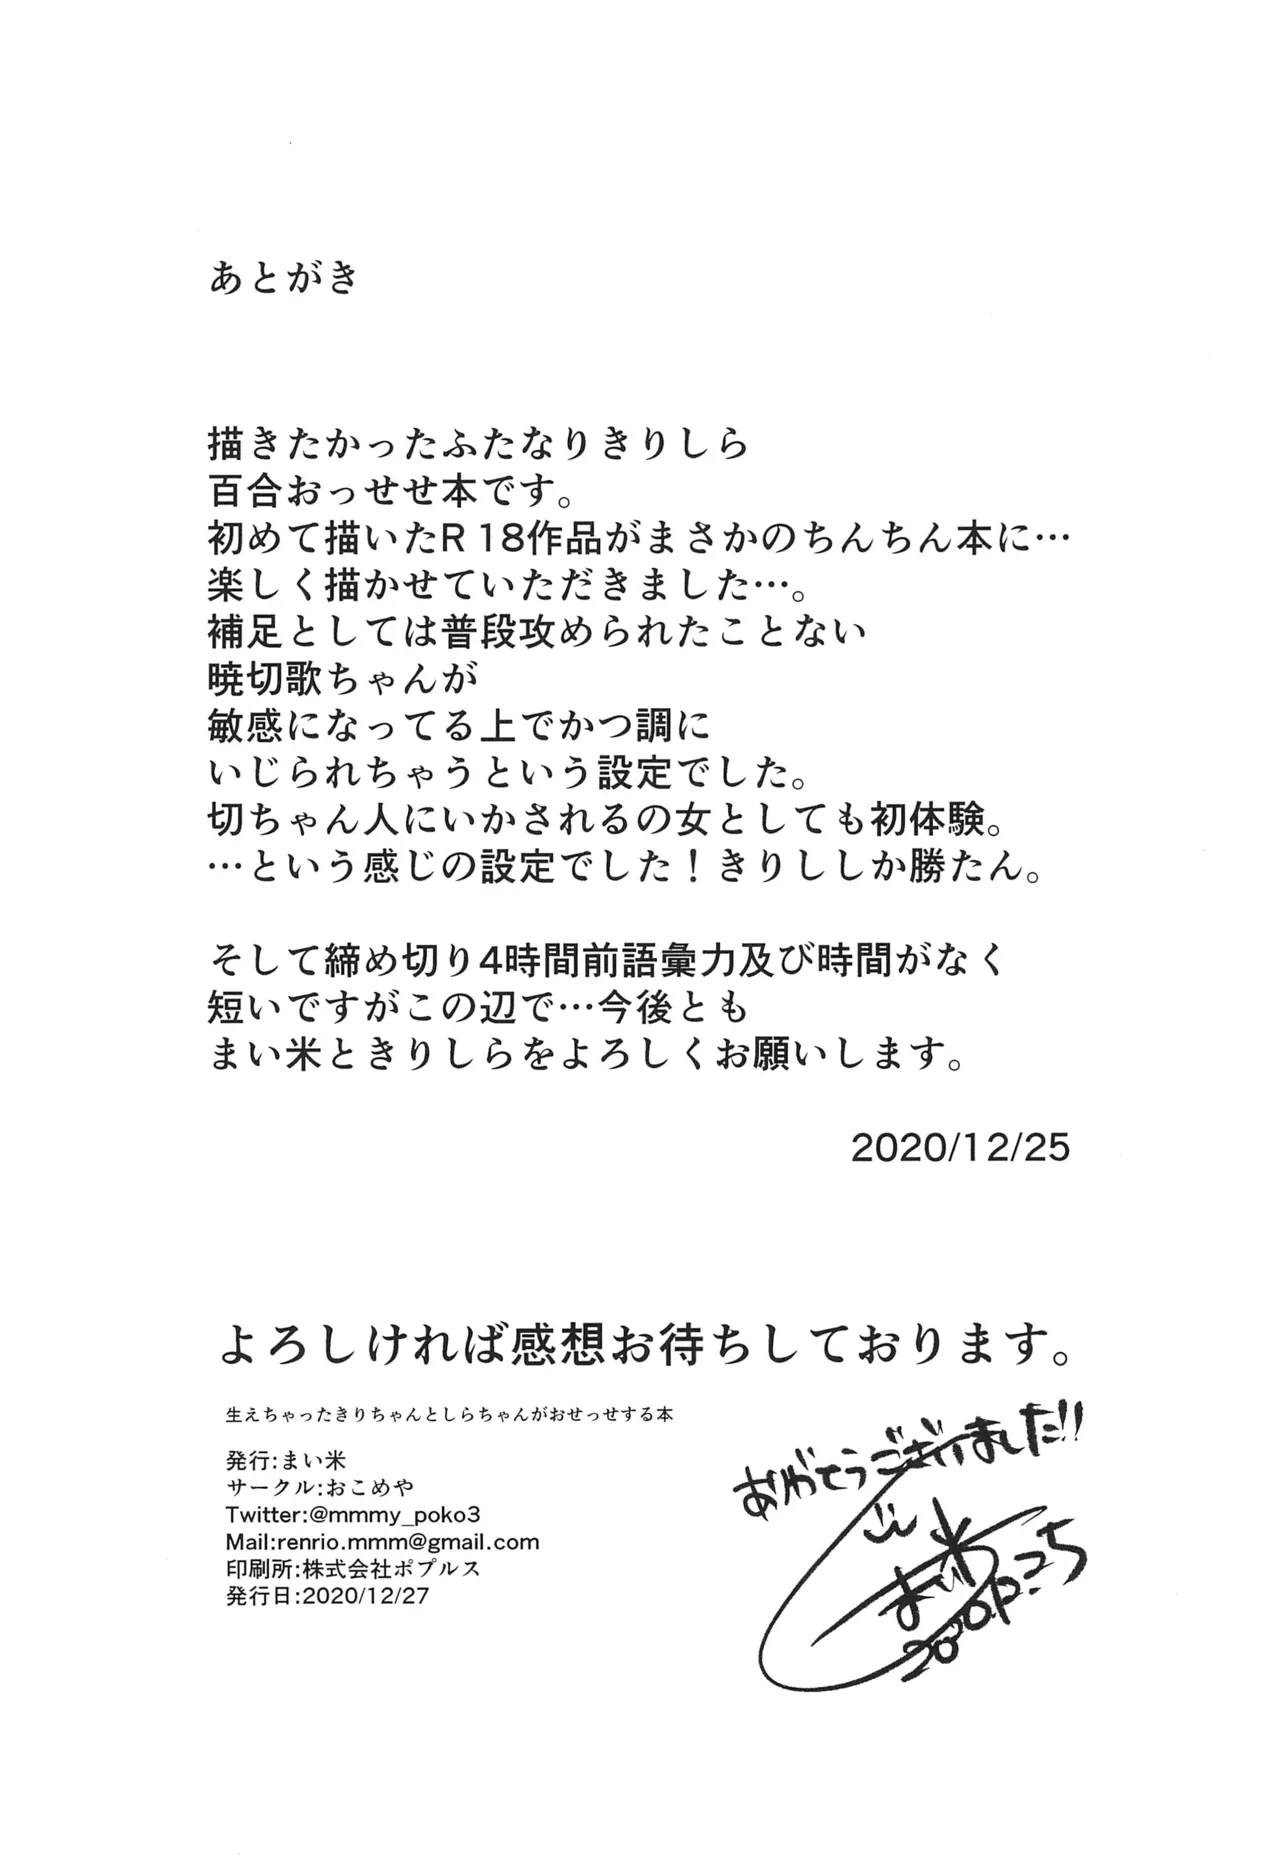 あとがき
描きたかったふたなりきりしら
百合おっせせ本です。
初めて描いたR 18作品がまさかのちんちん本に…
楽しく描かせていただきました…。
補足としては普段攻められたことない
暁切歌ちゃんが
敏感になってる上でかつ調に
いじられちゃうという設定でした。
切ちゃん人にいかされるの女としても初体験。
…という感じの設定でした！きりししか勝たん。
そして締め切り4時間前語彙力及び時間がなく
短いですがこの辺で…今後とも
まい米ときりしらをよろしくお願いします。
2020/12/25
よろしければ感想お待ちしております。
生えちゃったきりちゃんとしらちゃんがおせっせする本
発行:まい米
サークル:おこめや
Twitter:@mmmy_poko3
Mail:renrio.mmm@gmail.com
印刷所:株式会社ポプルス
発行日:2020/12/27
ありがとうございました!!
まい米